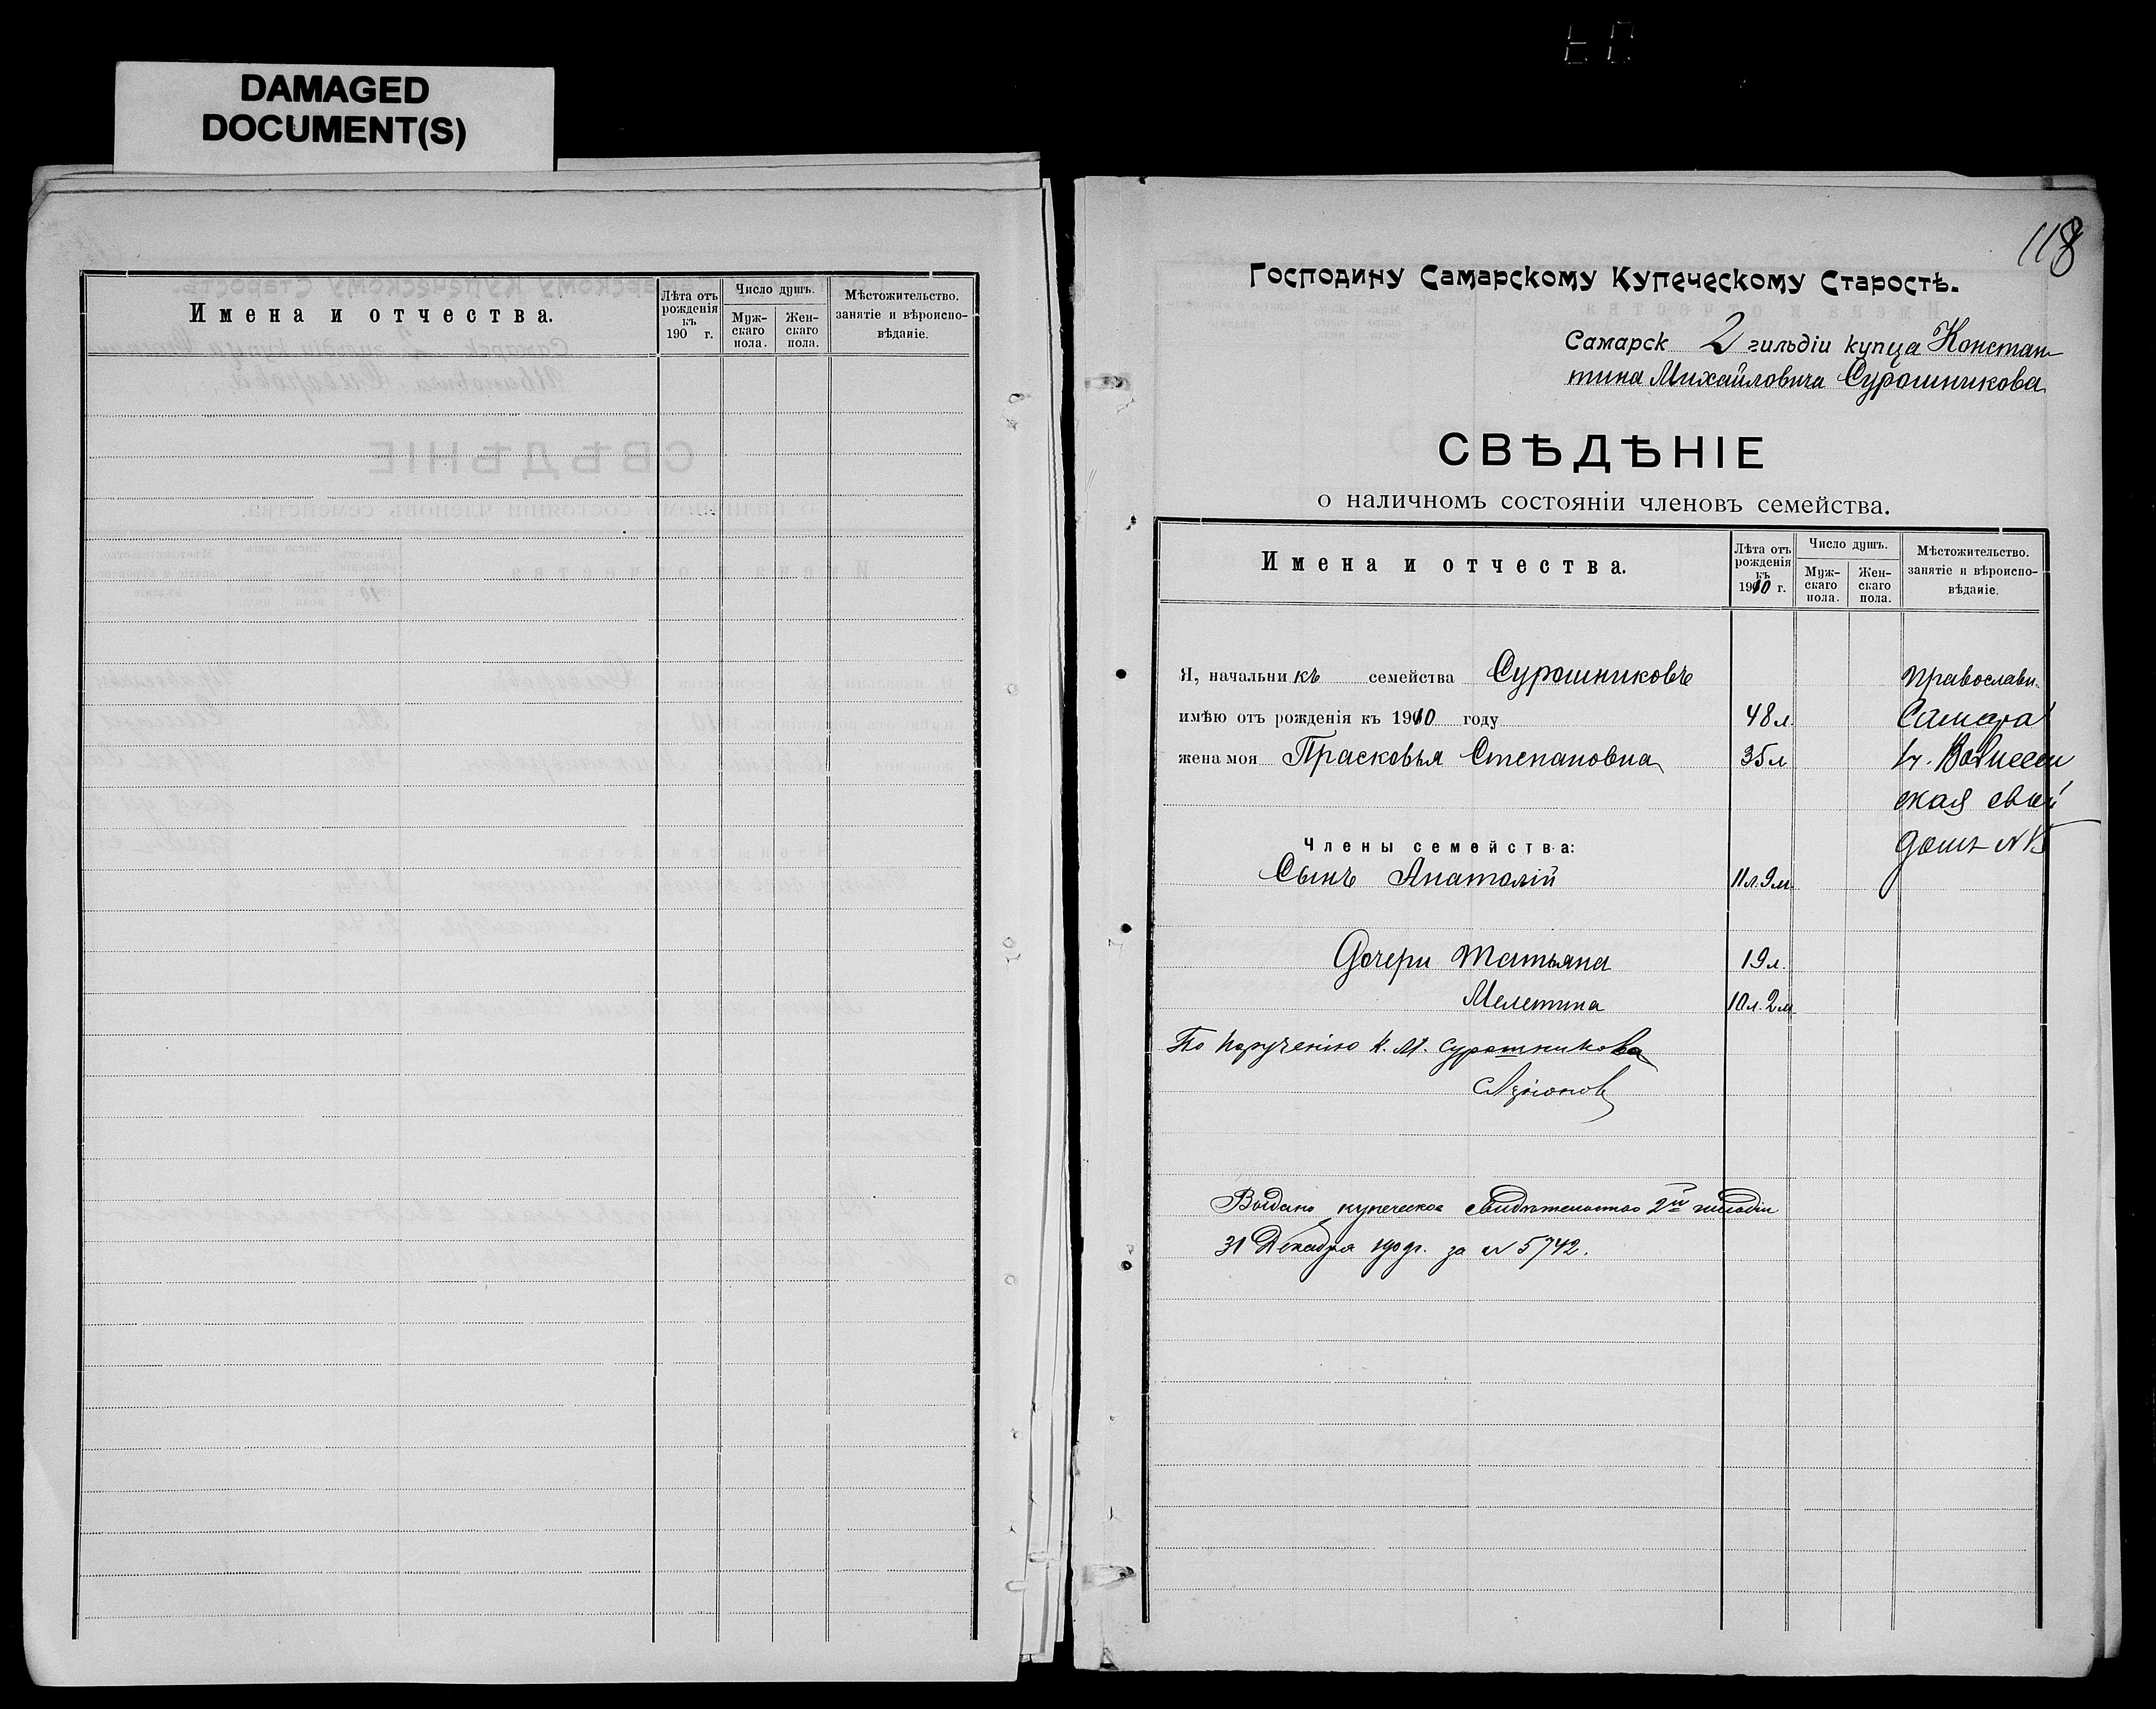 DAMAGED
DOCUMENT(S)
Имена и отчества.
Лѣта отъ рожденія къ 190 г.
Число душъ.
Муж-скаго пола.
Жен-скаго пола.
Мѣстожительство. занятіе и вѣроиспо-вѣданіе.
118
Господину Самарскому Купеческому Старостѣ.
Самарск 2 гильдіи купца Констан-
тина Михайловича Сурошникова
СВѢДѢНІЕ
о наличномъ состояніи членовъ семейства.
Имена и отчества.
Лѣта отъ рожденія къ 1910 г.
Число душъ.
Муж-скаго пола.
Жен-скаго пола.
Мѣстожительство. занятіе и вѣроиспо-вѣданіе.
Я, начальникъ семейства Сурошниковъ Православн.
имѣю отъ рожденія къ 1910 году 48 л. Самара
жена моя Прасковья Степановна 35 л Вознесен
ская свой
Члены семейства: домъ №
Сынъ Анатолій 11 л. 9 м.
Дочери Татьяна 19 л.
Мелетина 10 л. 2 м
По порученію К. М. Сурошникова
Выдано купеческое свидѣтельство 2й гильдіи
31 Декабря 1909г. за № 5742.